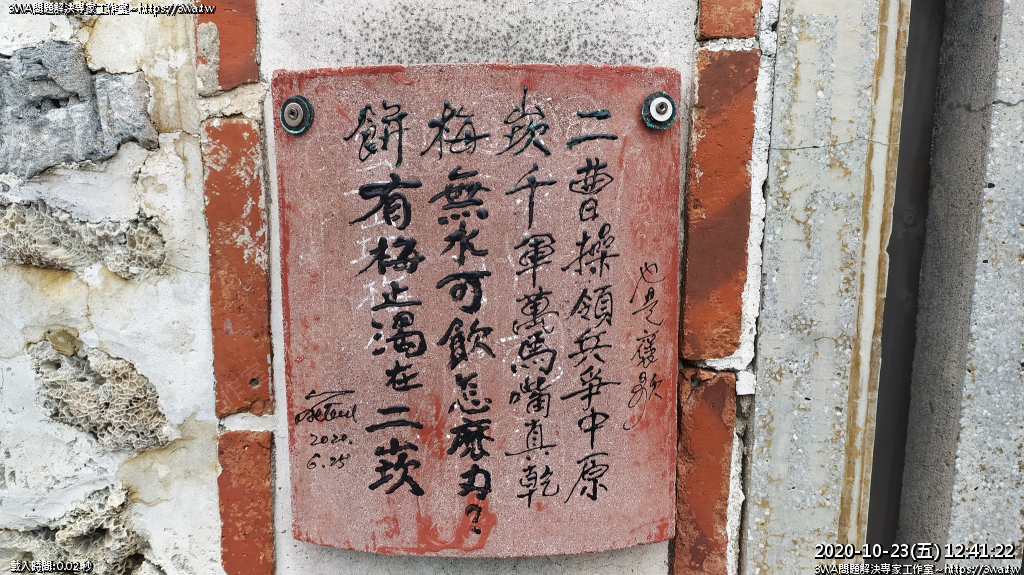 3WA問題解決專家工作室~https://3wa.tw
也是褒歌
二曹操領兵爭中原
崁千軍萬馬嘴真乾
梅無水可飲怎麼办?
餅有梅止渴在二崁
2020.
6.25
載入時間:0.02 秒
2020-10-23(五) 12:41.22
3WA問題解決專家工作室~https://3wa.tw